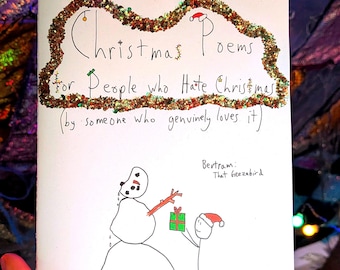 Christmas Poems
for People who Hate Christmas
(by someone who genuinely loves it)
Bertram:
That Geezabird